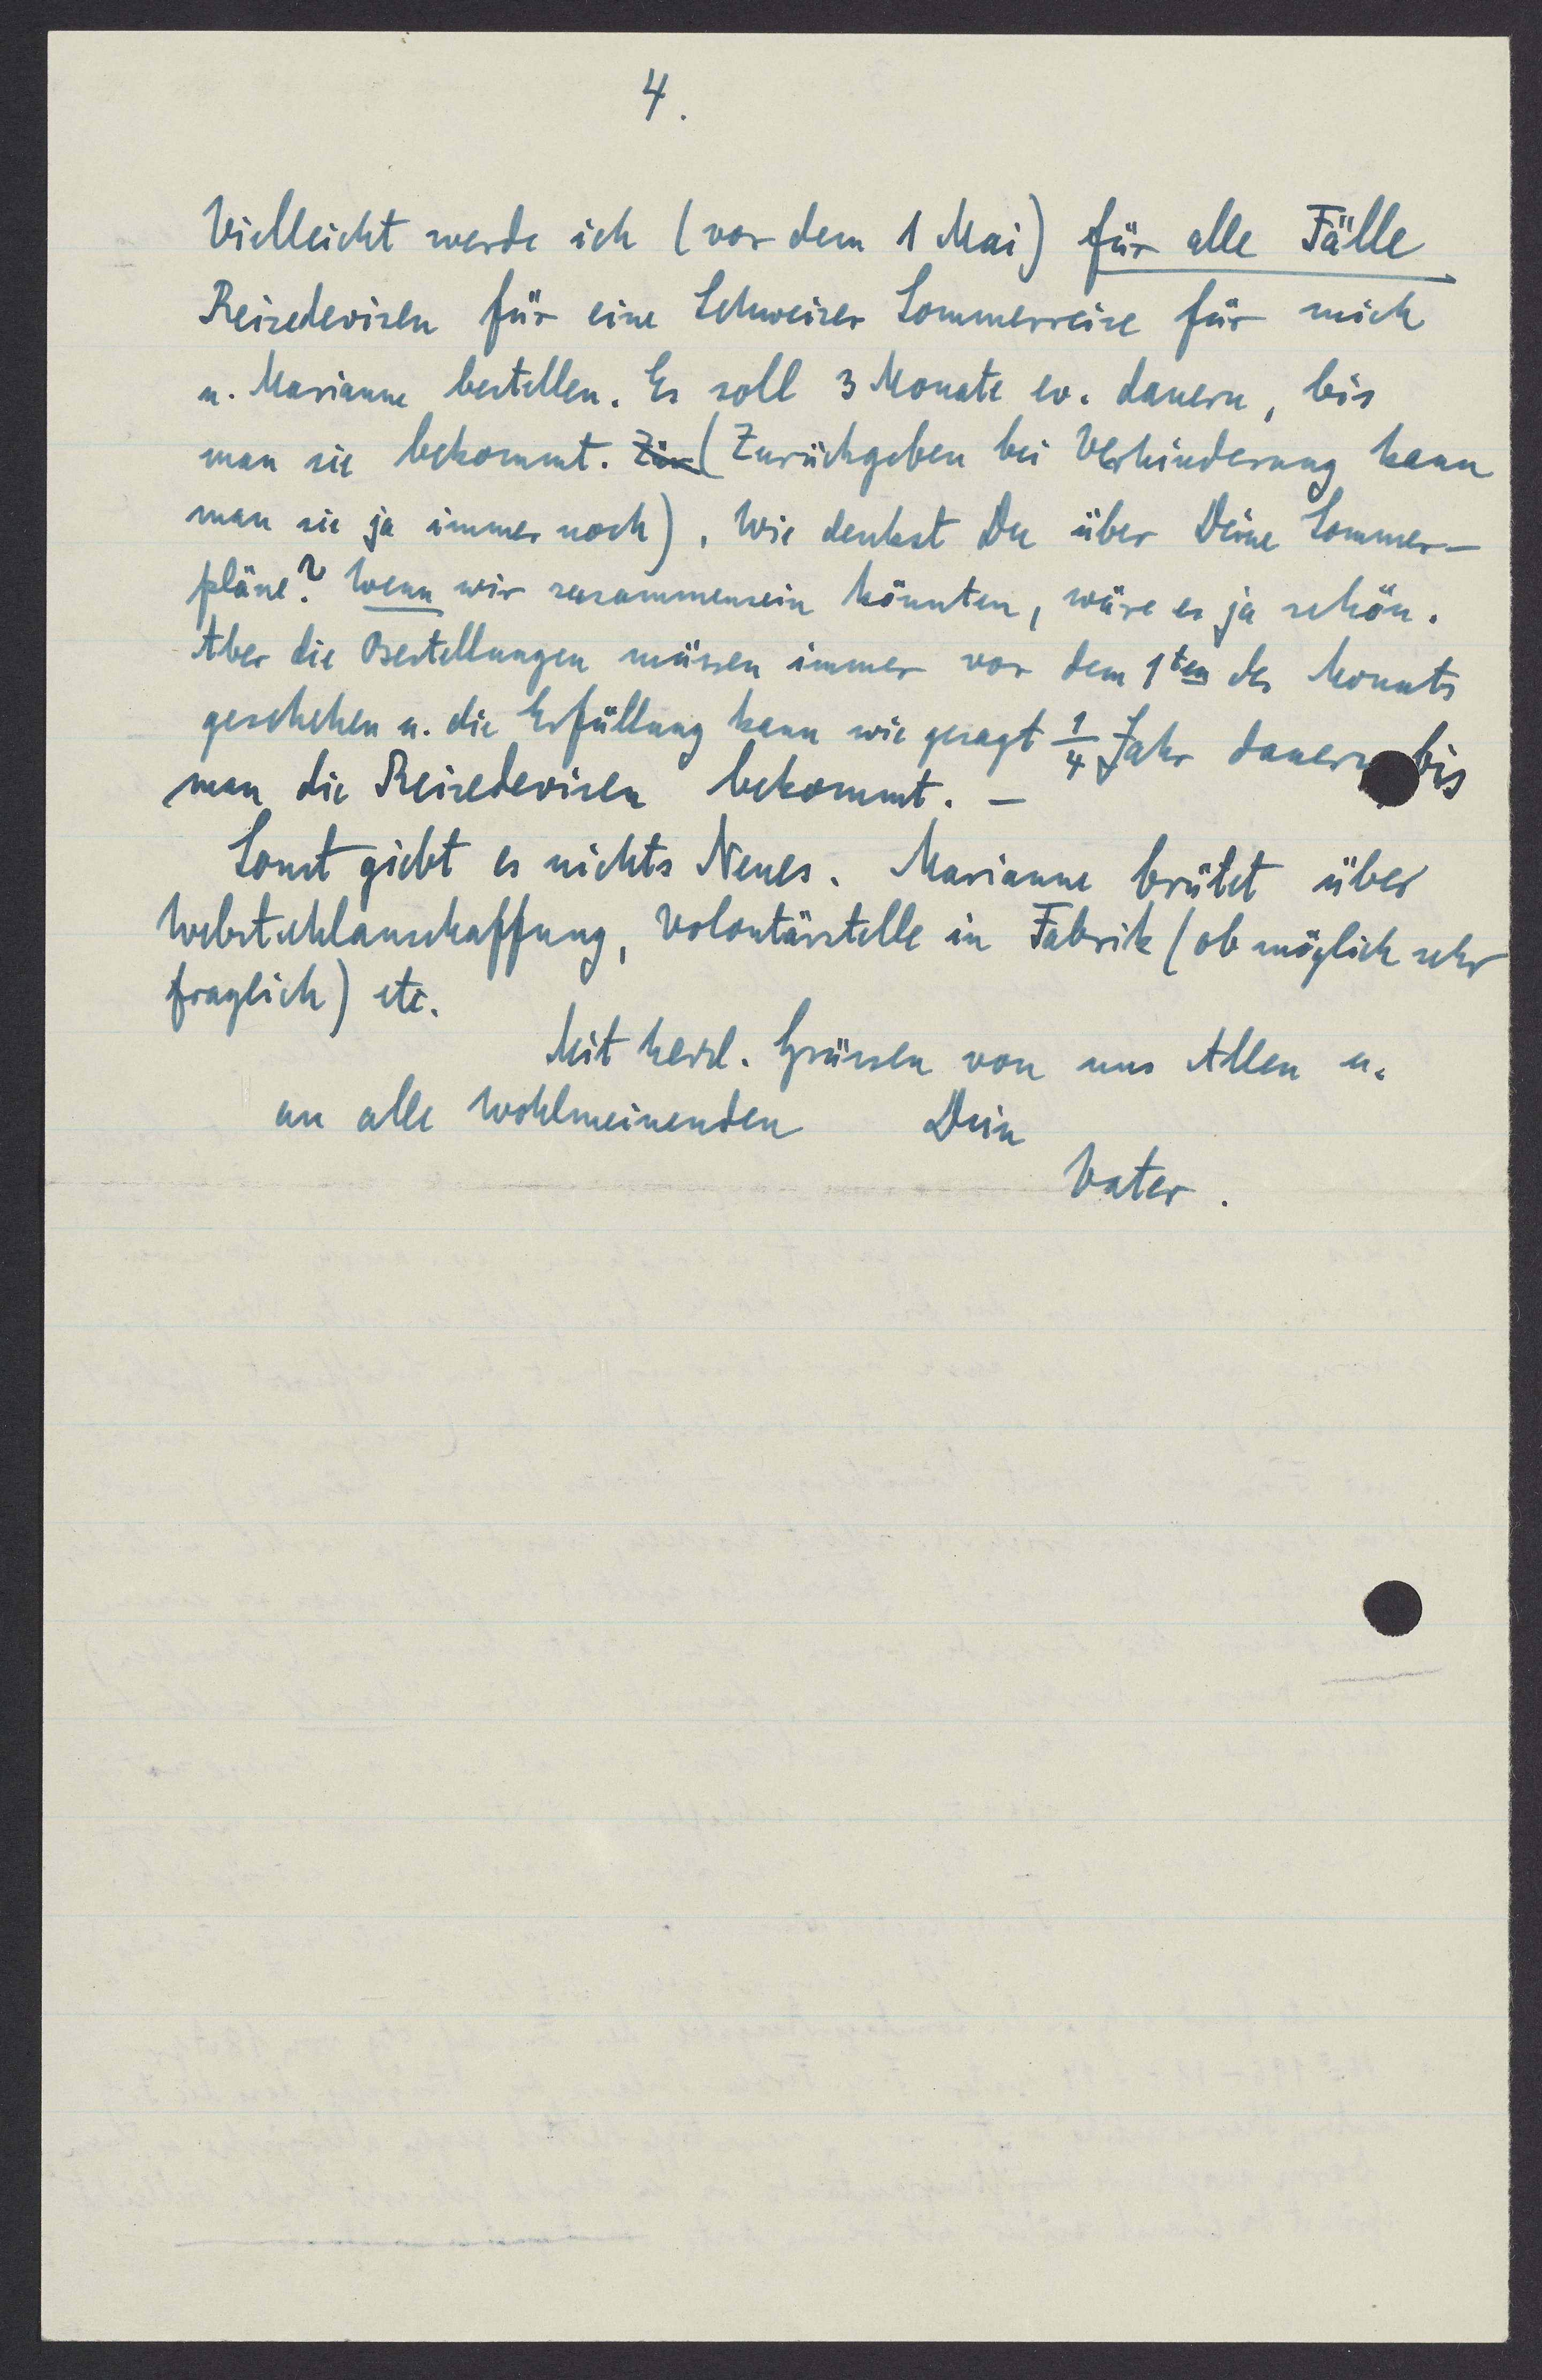 4.
Vielleicht werde ich (vor dem 1 Mai) für alle Fälle
Reisedevisen für eine Schweizer Sommerreise für mich
u. Marianne bestellen. Es soll 3 Monate ev. dauern, bis
man sie bekommt. Zur (Zurückgeben bei Verhinderung kann
man sie ja immer noch). Wie denkst Du über Deine Sommer-
pläne? Wenn wir zusammensein könnten, wäre es ja schön.
Aber die Bestellungen müssen immer vor dem 1ten des Monats
geschehen u. die Erfüllung kann wie gesagt 1/4 Jahr dauern bis
man die Reisedevisen bekommt. –
Sonst giebt es nichts Neues. Marianne brütet über
Webstuhlanschaffung, Volontärstelle in Fabrik (ob möglich sehr
fraglich) etc.
Mit herzl. Grüssen von uns Allen u.
an alle Wohlmeinenden Dein
Vater.